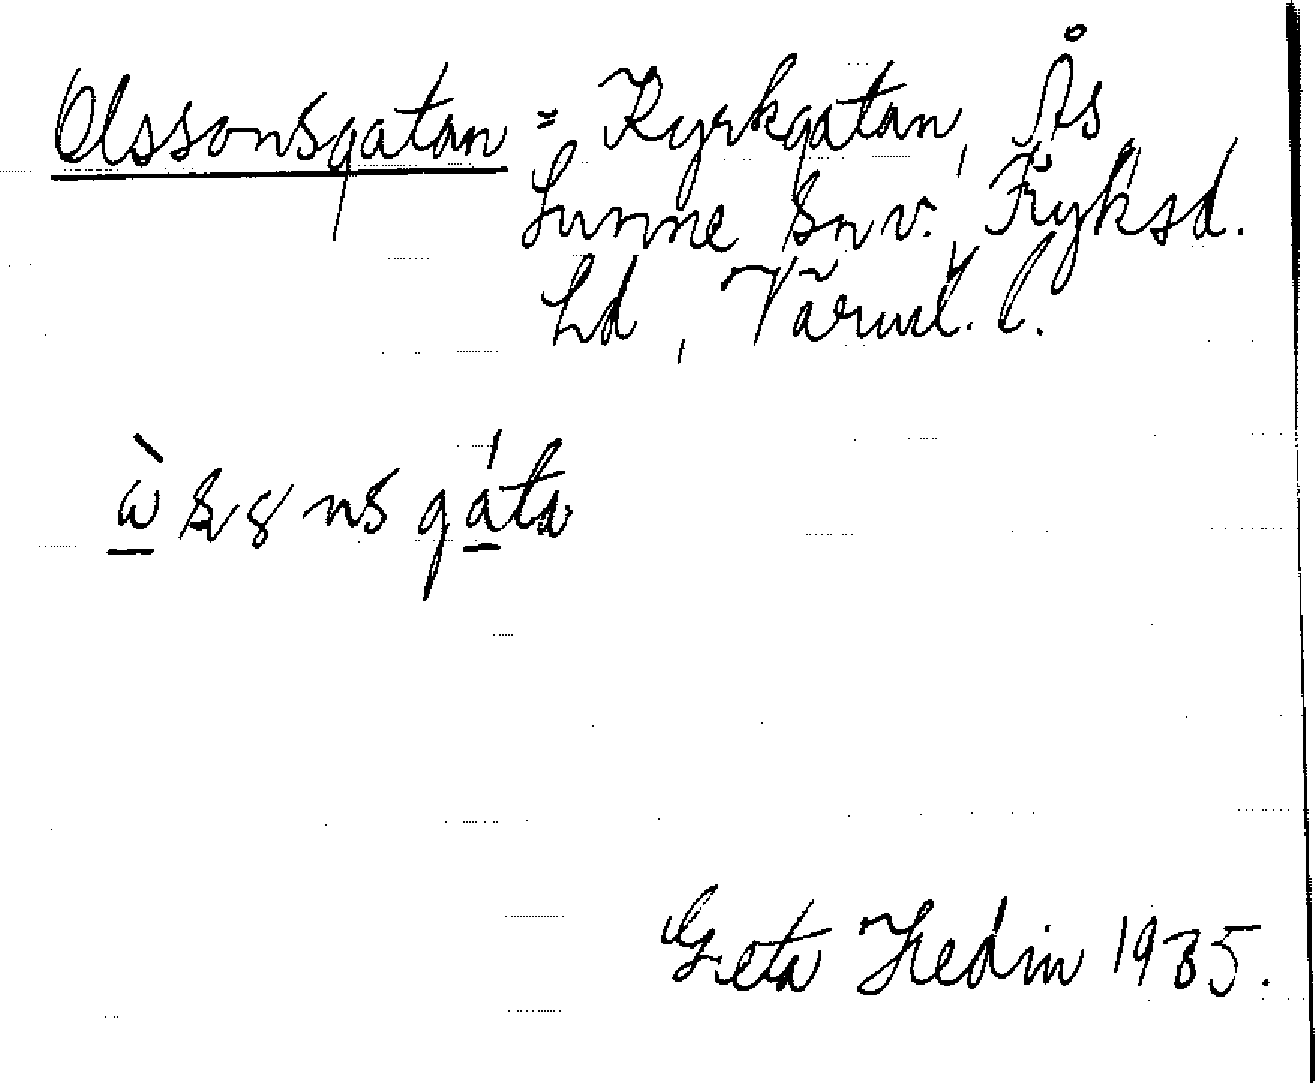 Olssonsgatan = Kyrkgatan, Ås
Sunne sn v. Fryksd.
hd, Värml. l.
Greta Hedin 1935.